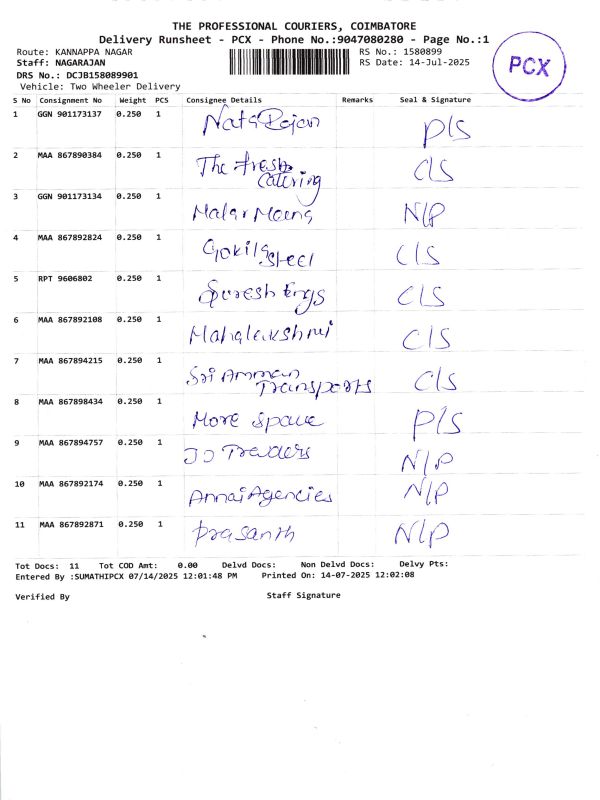 THE PROFESSIONAL COURIERS, COIMBATORE
Delivery Runsheet - PCX - Phone No.:9047080280 - Page No.:1
Route: KANNAPPA NAGAR RS No.: 1580899
Staff: NAGARAJAN RS Date: 14-Jul-2025
PCX
DRS No.: DCJB158089901
Vehicle: Two Wheeler Delivery
S No Consignment No Weight PCS Consignee Details Remarks Seal & Signature
1 GGN 901173137 0.250 1 Natarajan P/S
2 MAA 867890384 0.250 1 The Fresh C/S
Catering
3 GGN 901173134 0.250 1 Malar N/P
4 MAA 867892824 0.250 1 Gokila Steel C/S
5 RPT 9606802 0.250 1 Suresh Engs C/S
6 MAA 867892108 0.250 1 Mahalakshmi C/S
7 MAA 867894215 0.250 1 Sri Amman C/S
Transports
8 MAA 867898434 0.250 1 More Space P/S
9 MAA 867894757 0.250 1 JJ Traders N/P
10 MAA 867892174 0.250 1 Annai Agencies N/P
11 MAA 867892871 0.250 1 Prasanth N/P
Tot Docs: 11 Tot COD Amt: 0.00 Delvd Docs: Non Delvd Docs: Delvy Pts:
Entered By :SUMATHIPCX 07/14/2025 12:01:48 PM Printed On: 14-07-2025 12:02:08
Verified By Staff Signature